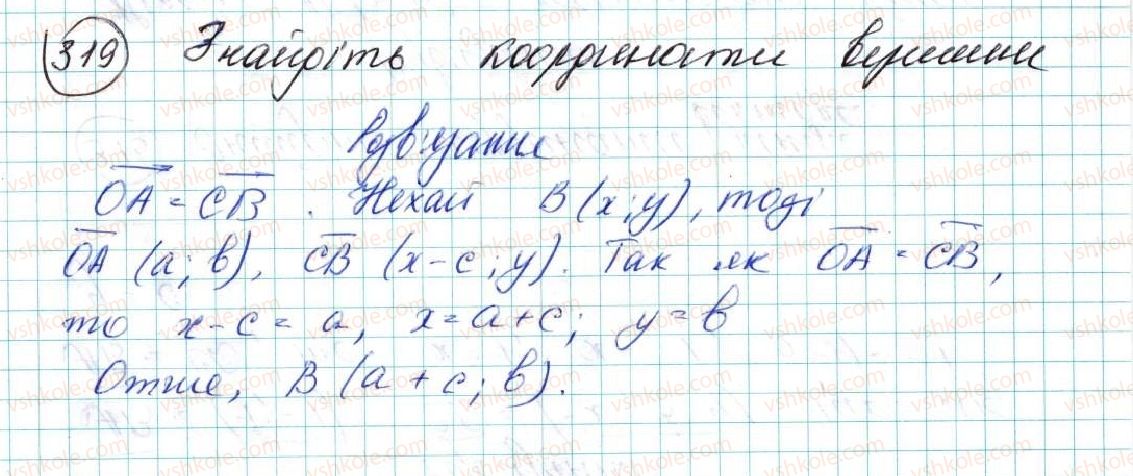 319 Знайдіть координати вершини
Розв'язання
OA = CB. Нехай B(x; y), тоді
OA (a; в), CB (x-c; y). Так як OA = CB,
то x-c = a, x = a+c; y = в
Отже, B (a+c; в).